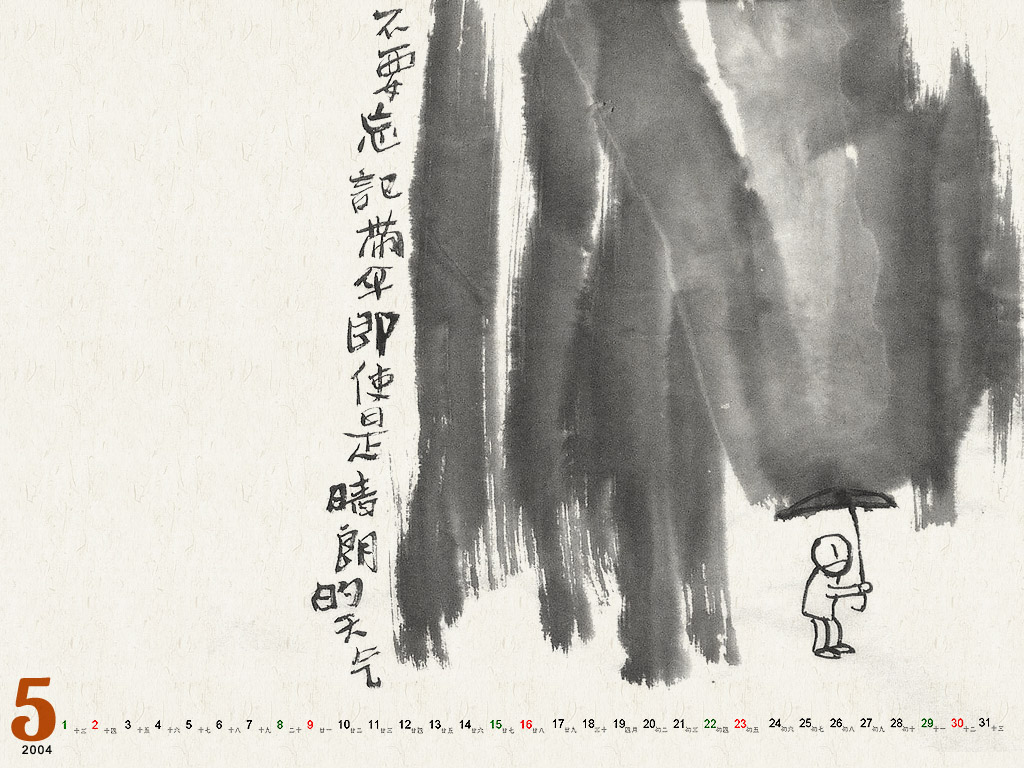 不要忘記帶伞即使是晴朗的天气
5
2004
1 十三 2 十四 3 十五 4 十六 5 十七 6 十八 7 十九 8 二十 9 廿一 10 廿二 11 廿三 12 廿四 13 廿五 14 廿六 15 廿七 16 廿八 17 廿九 18 三十 19 四月 20 初二 21 初三 22 初四 23 初五 24 初六 25 初七 26 初八 27 初九 28 初十 29 十一 30 十二 31 十三